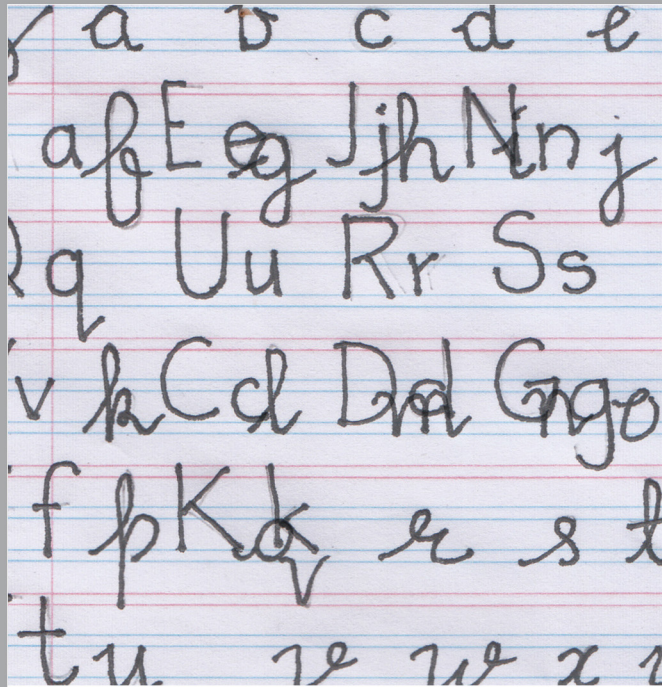 a b c d e
a f E e g J j h N i n j
q U u R r S s
v k C c l D m d G n g o
f p K k q r s t
t u v w x